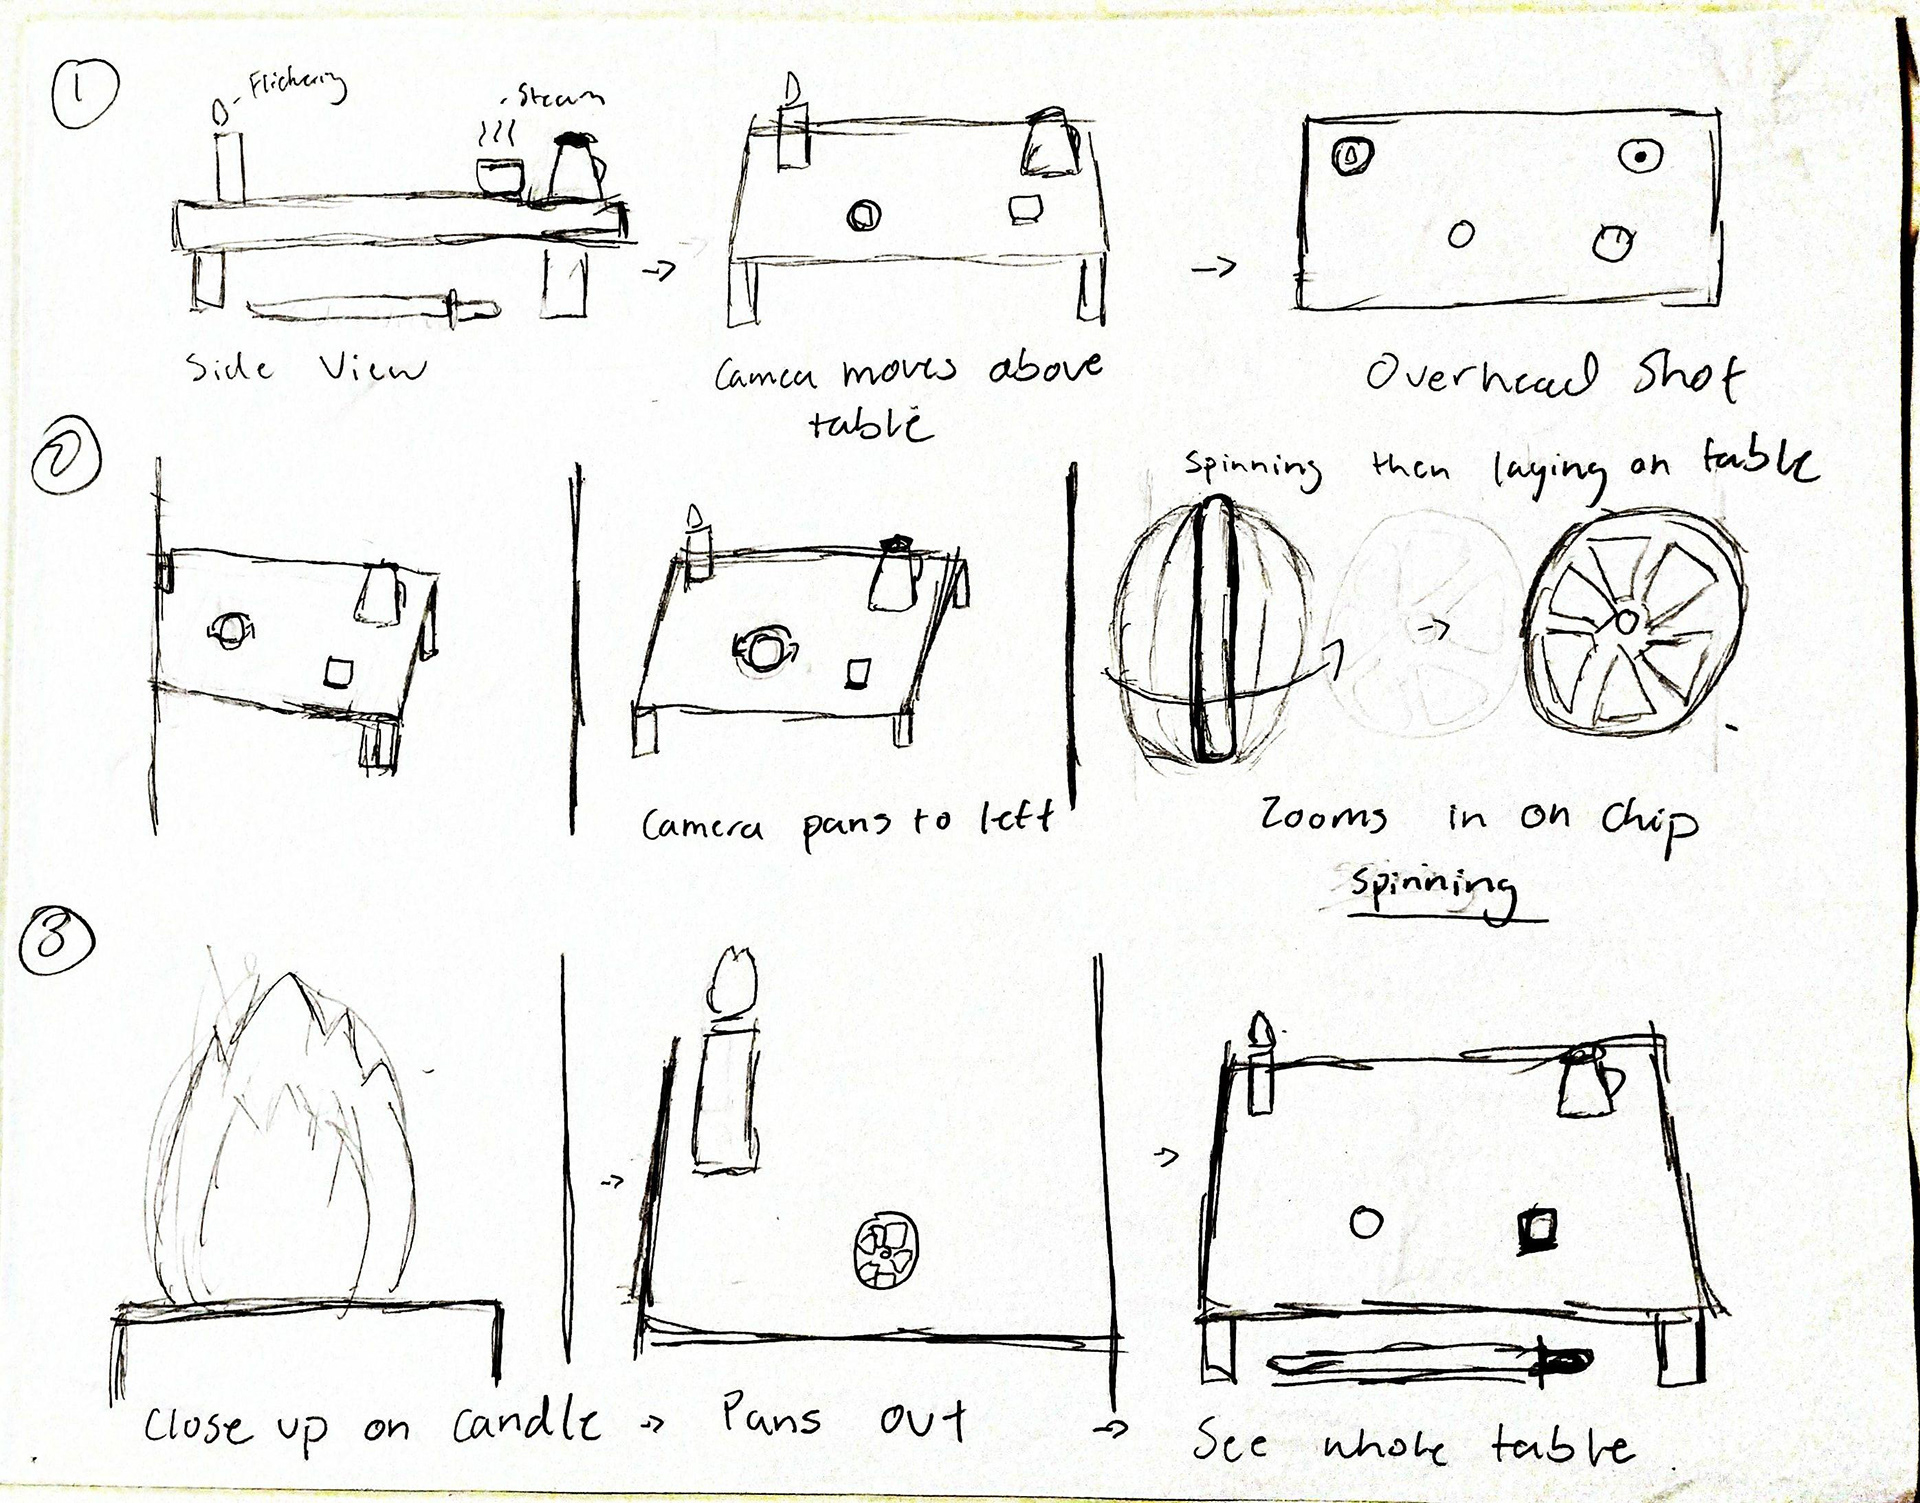 1
Flickering
Steam
Side View
Camera moves above
table
Overhead Shot
2
Spinning then laying on table
Camera pans to left
Zooms in on Chip
Spinning
3
Close up on candle → Pans out → See whole table